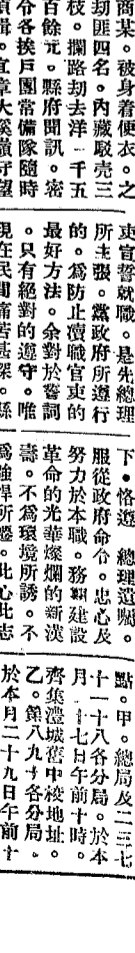 商某。被身着便衣。之
劫匪四名。內藏駁壳三
枝。攔路刧去洋一千五
百餘元。縣府聞訊。密
令各挨戶團常備隊隨時
緝。宜章大溪嶺守望
吏宣誓就職。是先總理
所主張。黨政府所遵行
的。爲防止瀆職官吏的
最好方法。余對於誓詞
。只有絕對的遵守。唯
現在民間痛苦甚深。縣
下。恪遵 總理遺囑。
服從政府命令。忠心及
努力於本職。務期建設
革命的光華燦爛的新漢
壽。不爲環境所誘。不
爲強悍所壓。此心此志
點。甲。總局及二三七
十一十八各分局。於本
月十七日午前十時。
齊集澧城舊中校地址。
乙。第八九十各分局。
於本月二十九日午前十